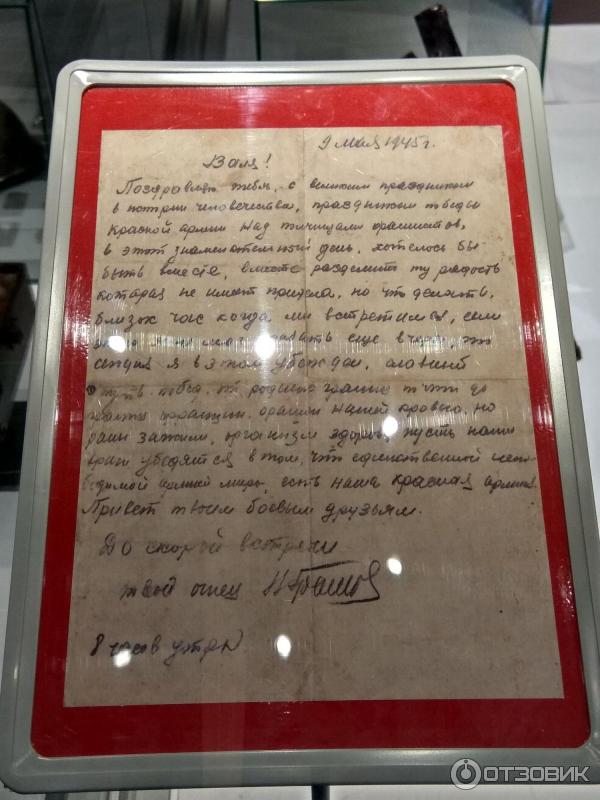 9 мая 1945 г.
Валя!
Поздравляю тебя, с великим праздником
в истории человечества, праздником победы
Красной армии над полчищами фашистов,
в этот знаменательный день, хотелось бы
быть вместе, вместе разделить ту радость
которая не имеет предела, но что делать,
близок час когда мы встретимся, если
еще вчера, то
сегодня я в этом убежден, славный
путь победы, от родного
нашей кровью, но
раны зажили, организм здоров, пусть наши
враги убедятся в том, что единственной непо-
бедимой армией мира, есть наша красная армия.
Привет твоим боевым друзьям.
До скорой встречи
твой отец
8 часов утра
ОТЗОВИК